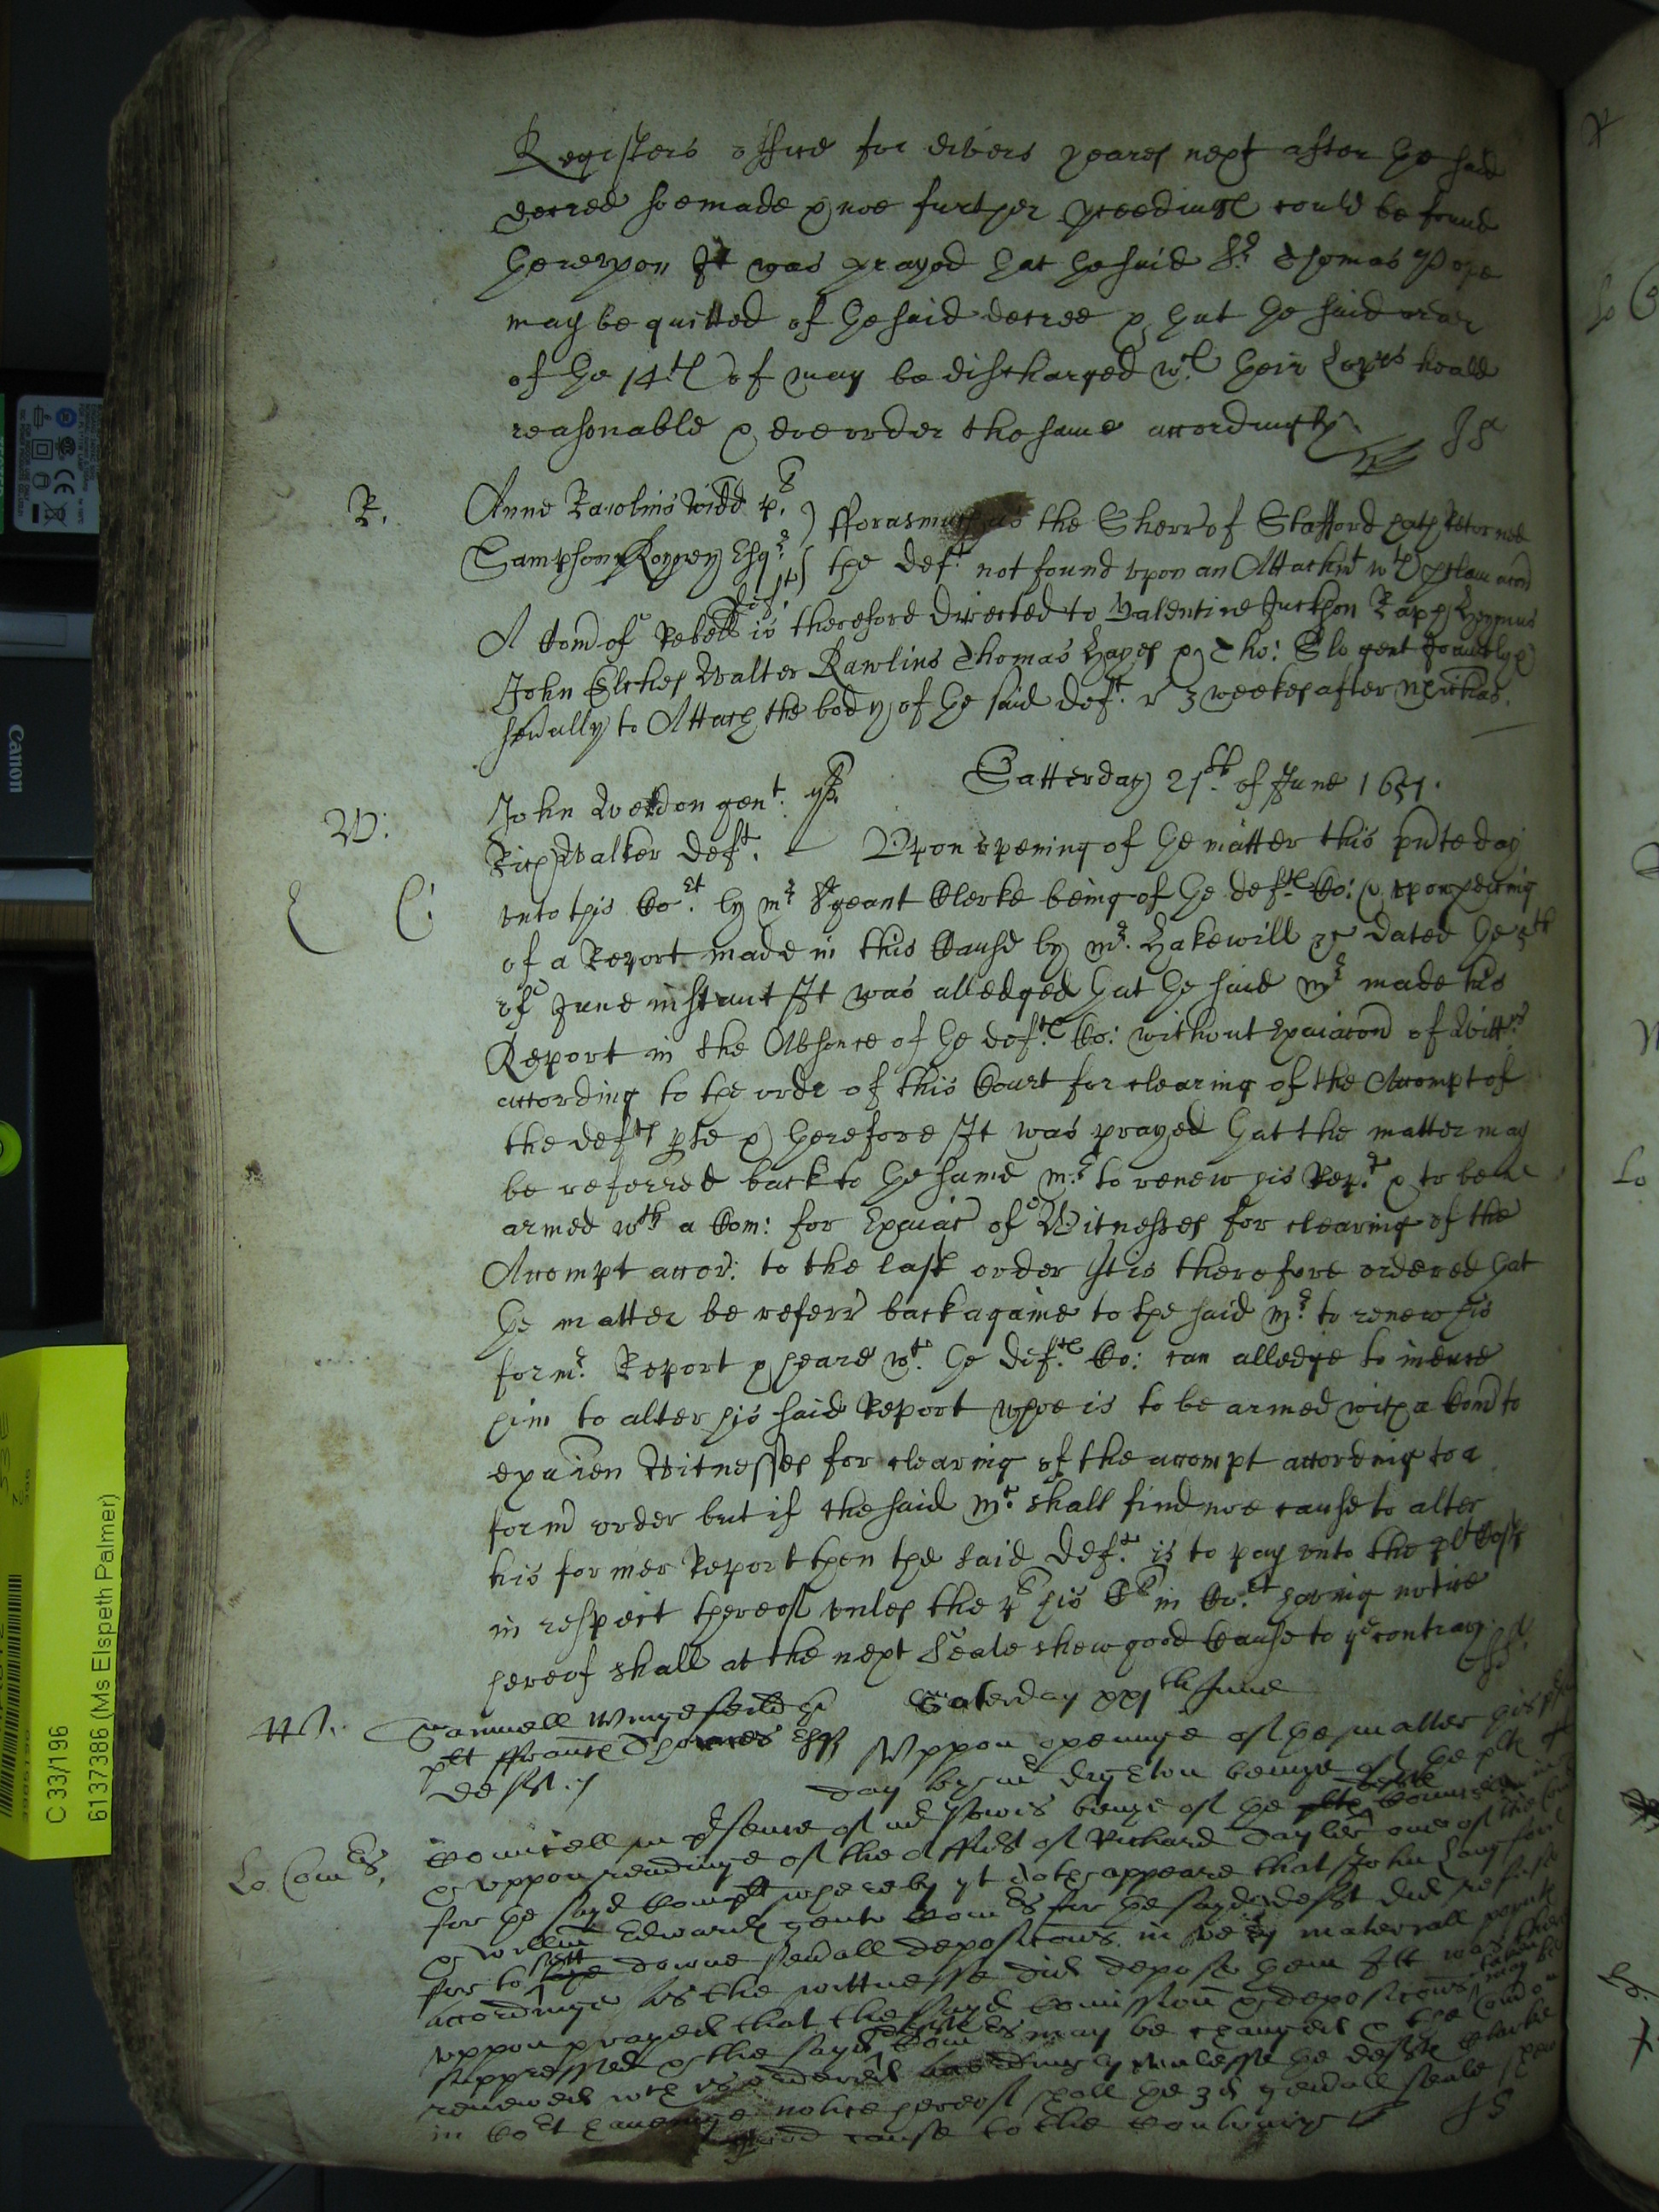 Registers office for divers yeares next after the said
decree soe made & noe further proceedings could be found
therevpon It was prayed that the said Sr. Thomas Pope
may be quitted of the said decree & that the said order
of the 14th of may be discharged wch their Lopps: heald
reasonable & doe order the same accordingly
R.
Anne Rawlins widd plt
Sampson Esqr. deft
fforasmuch as the Sherr of Stafford hath Retorned
the Deft. not found vpon an Attachmt wth proclamacon
A Com of Rebell is therefore directed to Valentine Jackson Raph
John Walter Rawlins Thomas Hayes & Tho: gent Joyntly &
severally to Attach the body of the said Deft. r 3 weekes after Michas.
Satterday 21th. of June 1651.
W:
John Weldon gent. plt.
Rich Walker Deft.
Vpon opening of the matter this pnte day
vnto this Cort. by mr Sergeant Clerke being of the defts Co: & vpon hearing
of a Report made in this Cause by mr. Hakewill &c dated the 5th
of June instant It was alledged that the said mr made his
Report in the Absence of the defts Co: without Exaiacon of Wittns
according to the order of this Court for clearing of the Accompt of
the defts pte & therefore It was prayed that the matter may
be referred back to the same mr. to renew his Rept. & to bee
armed wth a Com: for Exaiac of Witnesses for clearing of the
Accompt accor: to the last order It is therefore ordered that
the matter be referr back againe to the said mr. to renew his
formr. Report & heare wt. the Defts Co: can alledge to induce
him to alter his said Report whoe is to be armed with a Com to
exaien Witnesses for clearing of the accompt according to a
form order but if the said mr. shall find noe cause to alter
his former Report then the said Deft. is to pay vnto the plt Costs
in respect thereof vnles the his Clk in Cort. having notice
hereof shall at the next Seale shew good Cause to ye contrary
Saterday xxjth June
Samuell Wingefeild
plt ffrancis Thornes Esqr
deft
Vppon openinge of the matter this
day by mr beinge of the plts
Councell in psence of mr beinge of the defts Councell
& vppon readinge of the Affidt of Richard Tayler one of the
for the sayd whereby yt doth appeare that John Langford
& Willm Edwards gents Comrs for the sayd deft did refuse
for to sett downe severall deposicons in very materiall
accordinge as the wittnesse did depose them Itt was
vppon prayed that the sayd Comission & deposicons may be
suppressed & the sayd Comrs may be changed & the
renewed wch is ordered accordingly vnlesse the defts Clarke
in Cort haveinge notice hereof shall the 3d generall seale
good cause to the contrary
C 33/196
6137386 (Ms Elspeth Palmer)
Canon